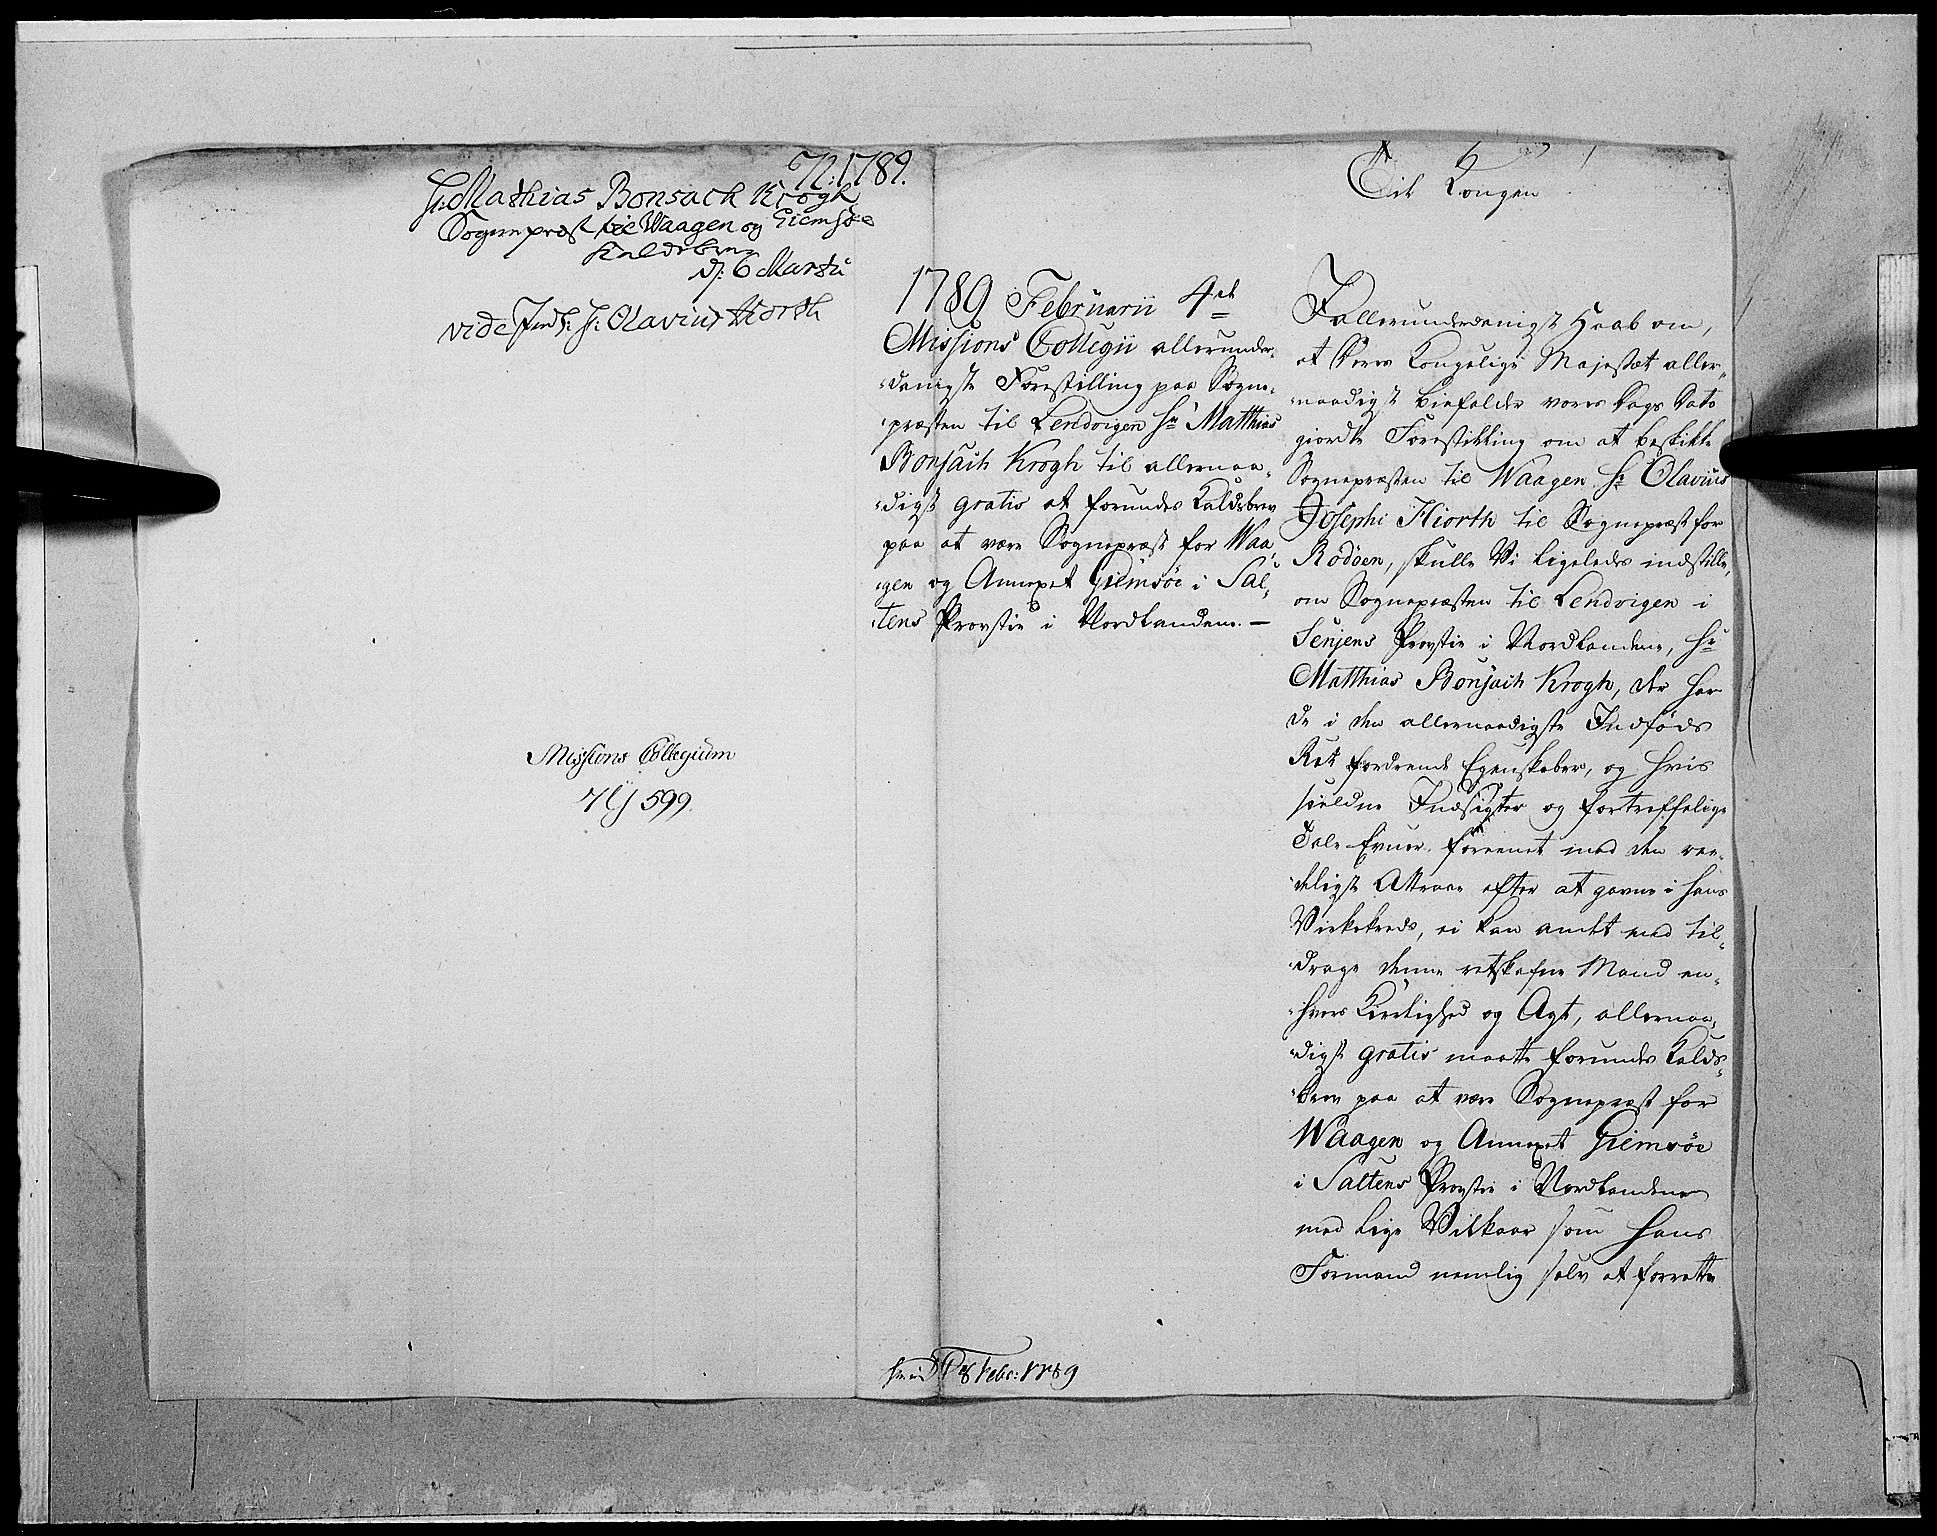 N: 1789.
Hr: Mathias Bonsach Krogh
Sognepræst til Waagen og Giemsøe
Kaldsbrev
d: 6 Martii
vide Hr: Olavius Hiorth
Missions Collegium
599.
1789 Februarii 4de
Missions Collegii allerunder-
danigste Forestilling paa Sogne-
præsten til Lendvigen Hr Matthias
Bonsach Krogh til allernaa-
digst gratis at forundes Kaldsbrev
paa at være Sognepræst for Waa-
gen og Annexet Giemsöe i Sal-
tens Provstie i Nordlandene. —
Febr: 1789
6
Til Kongen
I allerunderdanigst Haab om,
at Deres Kongelige Majestæt aller-
naadigst biefalder vores Dags Dato
giorde Forestilling om at beskikke
Sognepræsten til Waagen Hr Olavius
Josephi Hiorth til Sognepræst for
Rödöen, skulle Vi ligeledes indstille,
om Sognepræsten til Lendvigen i
Senjens Provstie i Nordlandene, Hr
Matthias Bonsach Krogh, der har
de i den allernaadigste Indføds
Ret fordrende Egenskaber, og hvis
sieldne Indsigter og fortreffelige
Tale-Evner foreenet med den rre-
deligste Attraae efter at gavne i hans
Virkekreds, ei kan andet end til-
drage denne retskafne Mand en-
hvers Kierlighed og Agt, allernaa-
digst gratis maatte forundes Kalds-
brev paa at være Sognepræst for
Waagen og Annexet Giemsöe
i Saltens Provstie i Nordlandene
med lige Vilkaar som hans
Formand nemlig selv at forrette